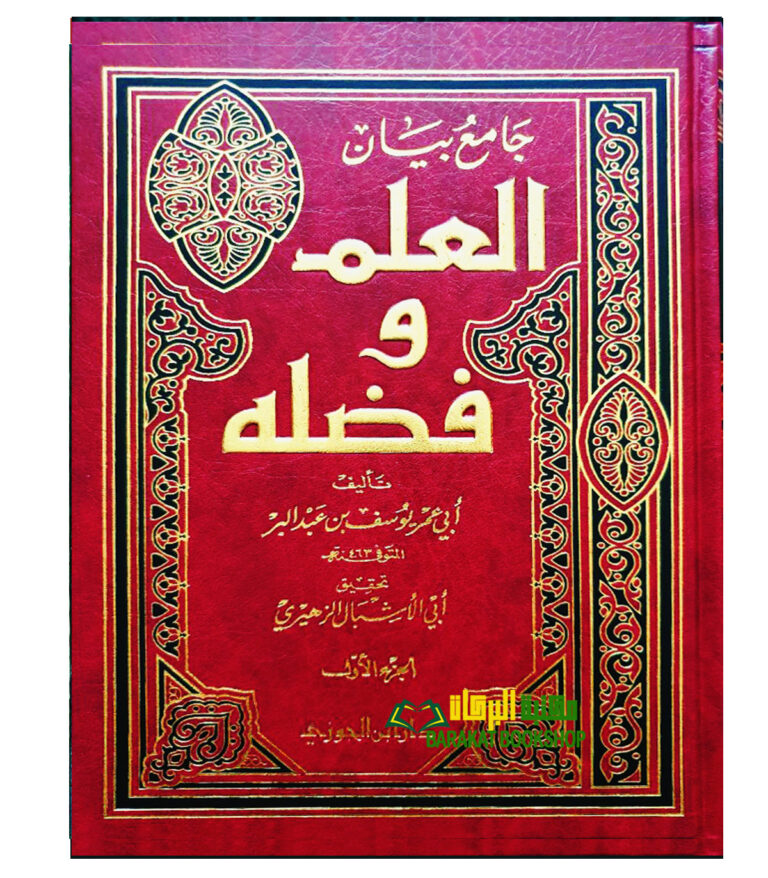 جامع بيان
العلم
و
فضله
تأليف
أبي عمر يوسف بن عبد البر
المتوفى ٤٦٣ سنة هـ
تحقيق
أبي الأشبال الزهيري
الجزء الأول
مكتبة البركات
دار ابن الجوزي
BARAKAT BOOKSHOP